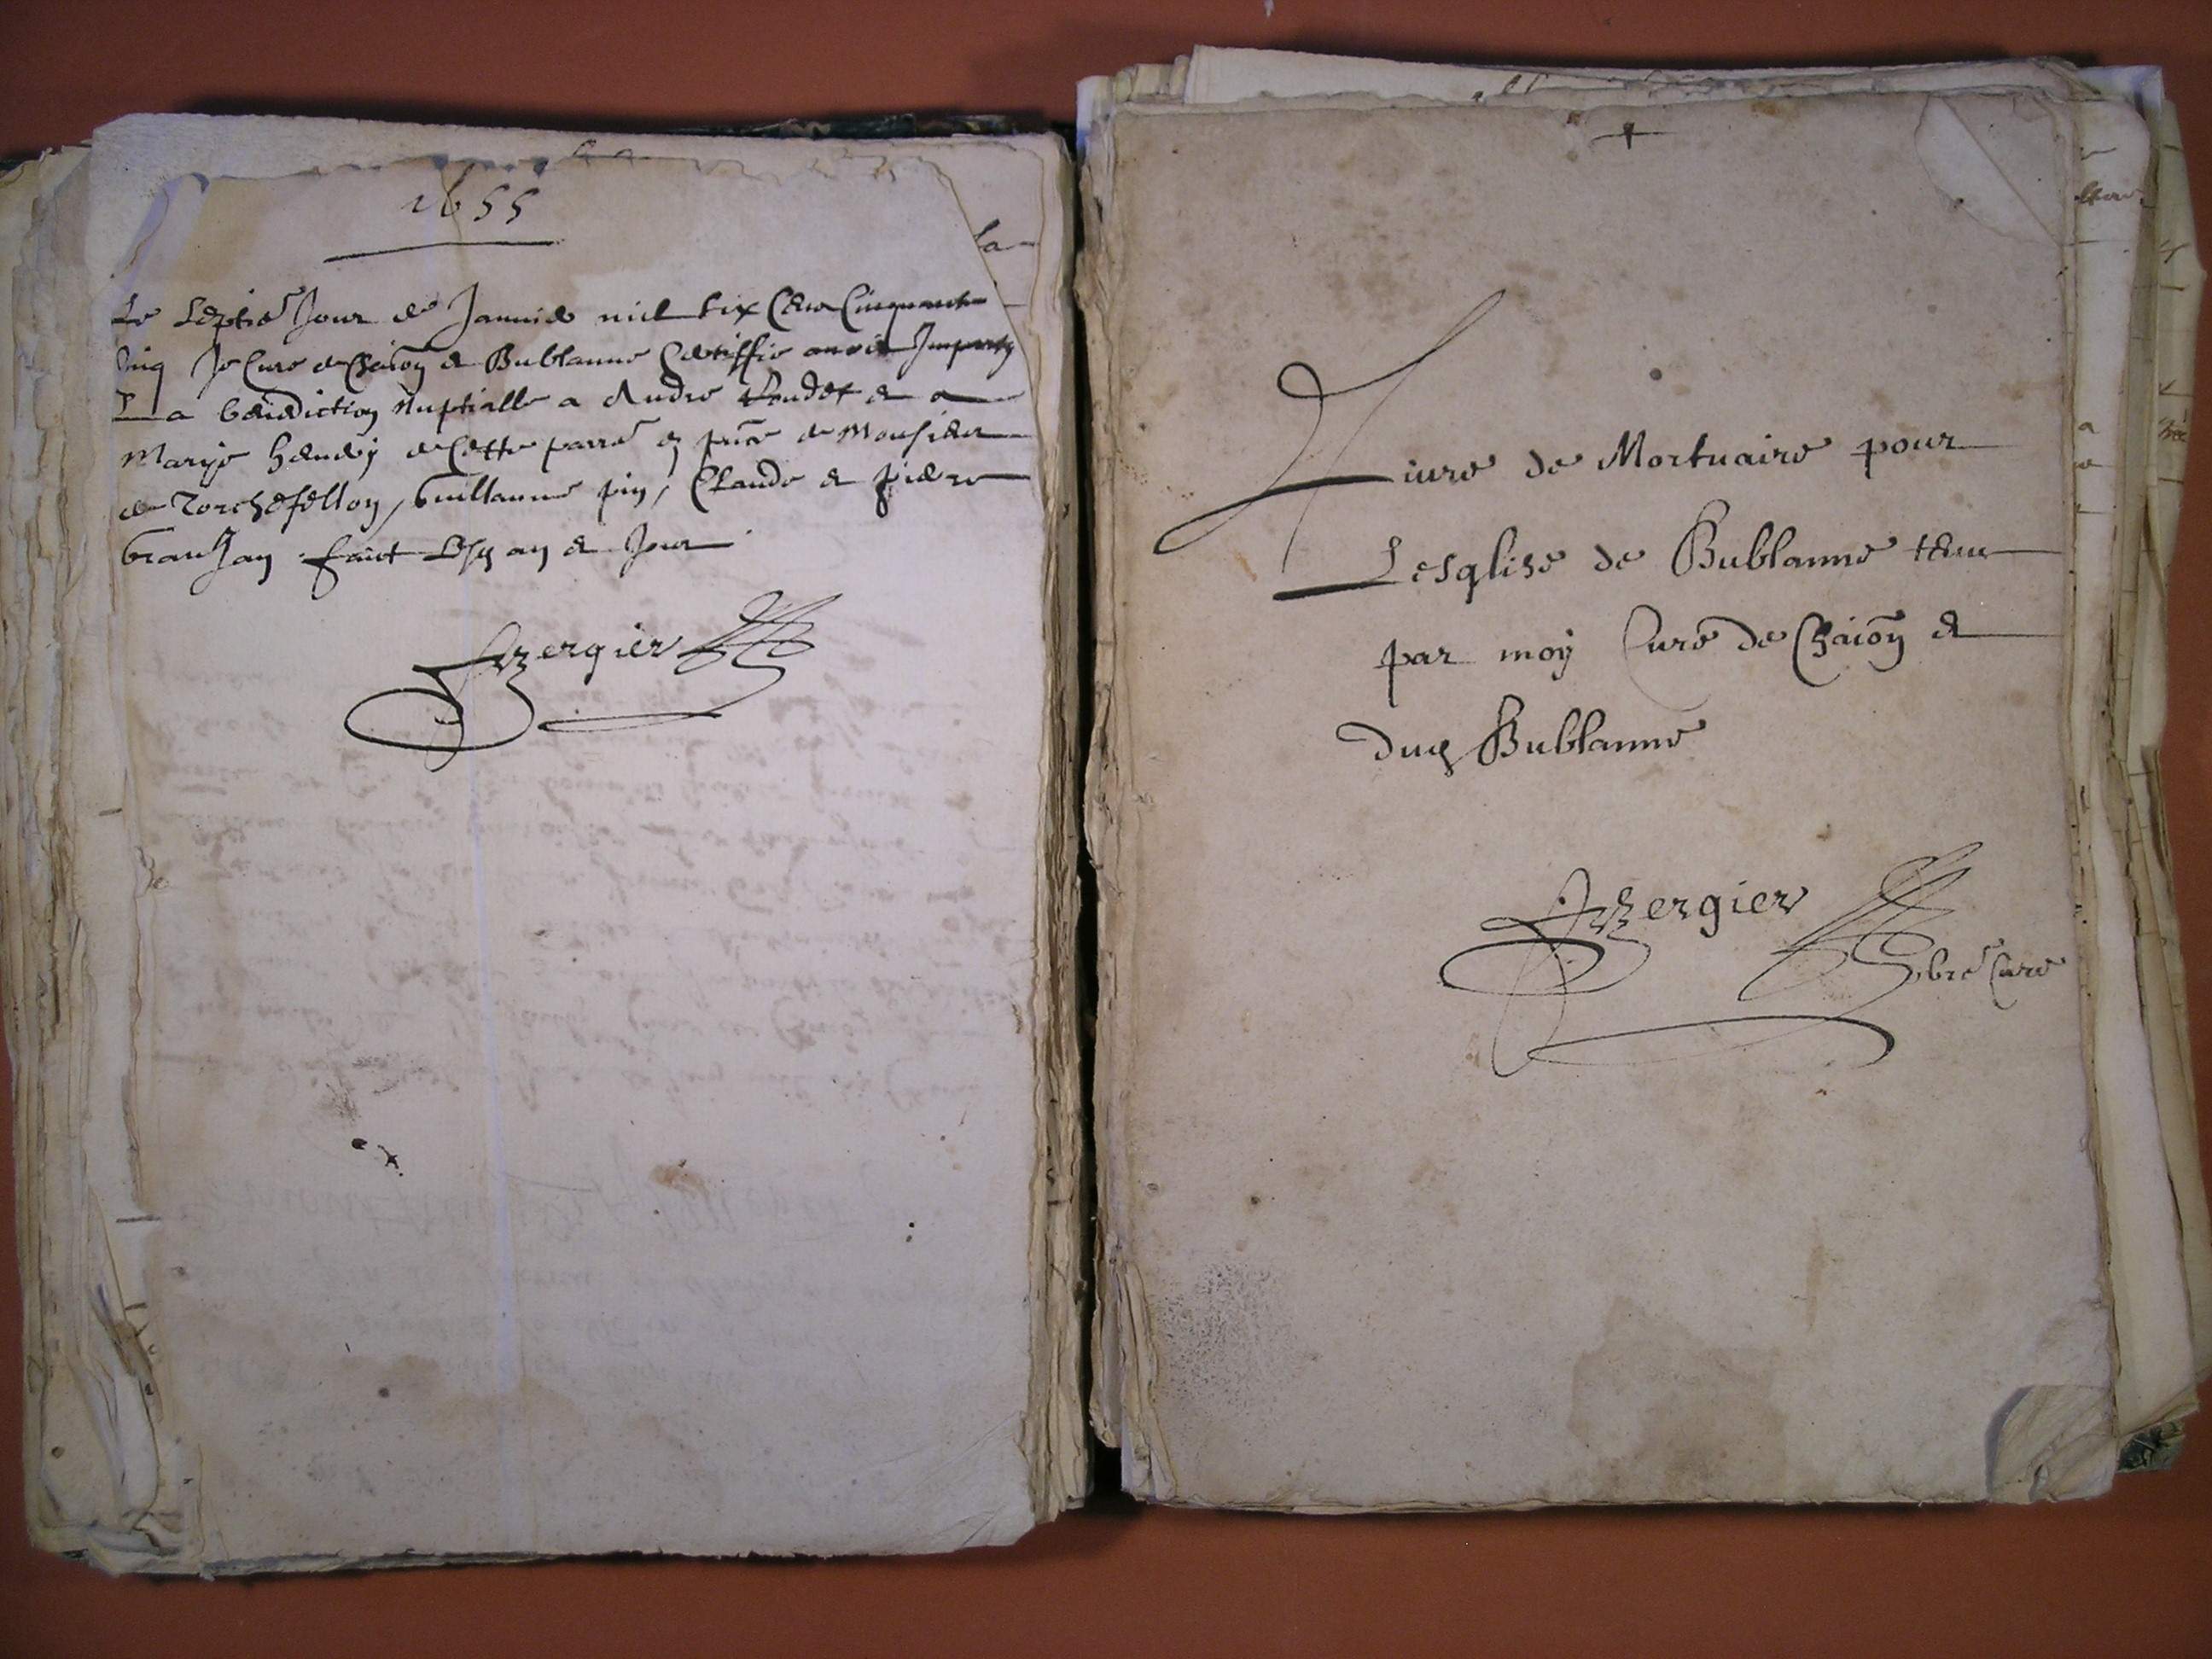 1655
Le septie Jour de Januier mil six Cens Cinquante
Cinq Je Cure de Chaiōy & Bublanne Certiffie auoir Imparty
La benediction Nuptialle a Andre & a
Marije de Cette parre ē pñce de Monsieur
de Torchefellon, Guillaume pin, Claude & pierre
faict Lesy an & Jour
Bergier
+
Liure de Mortuaire pour
Lesglise de Bublanne tenu
par moy Cure de Chaiōy &
dud Bublanne
Bergier
pbre Cure